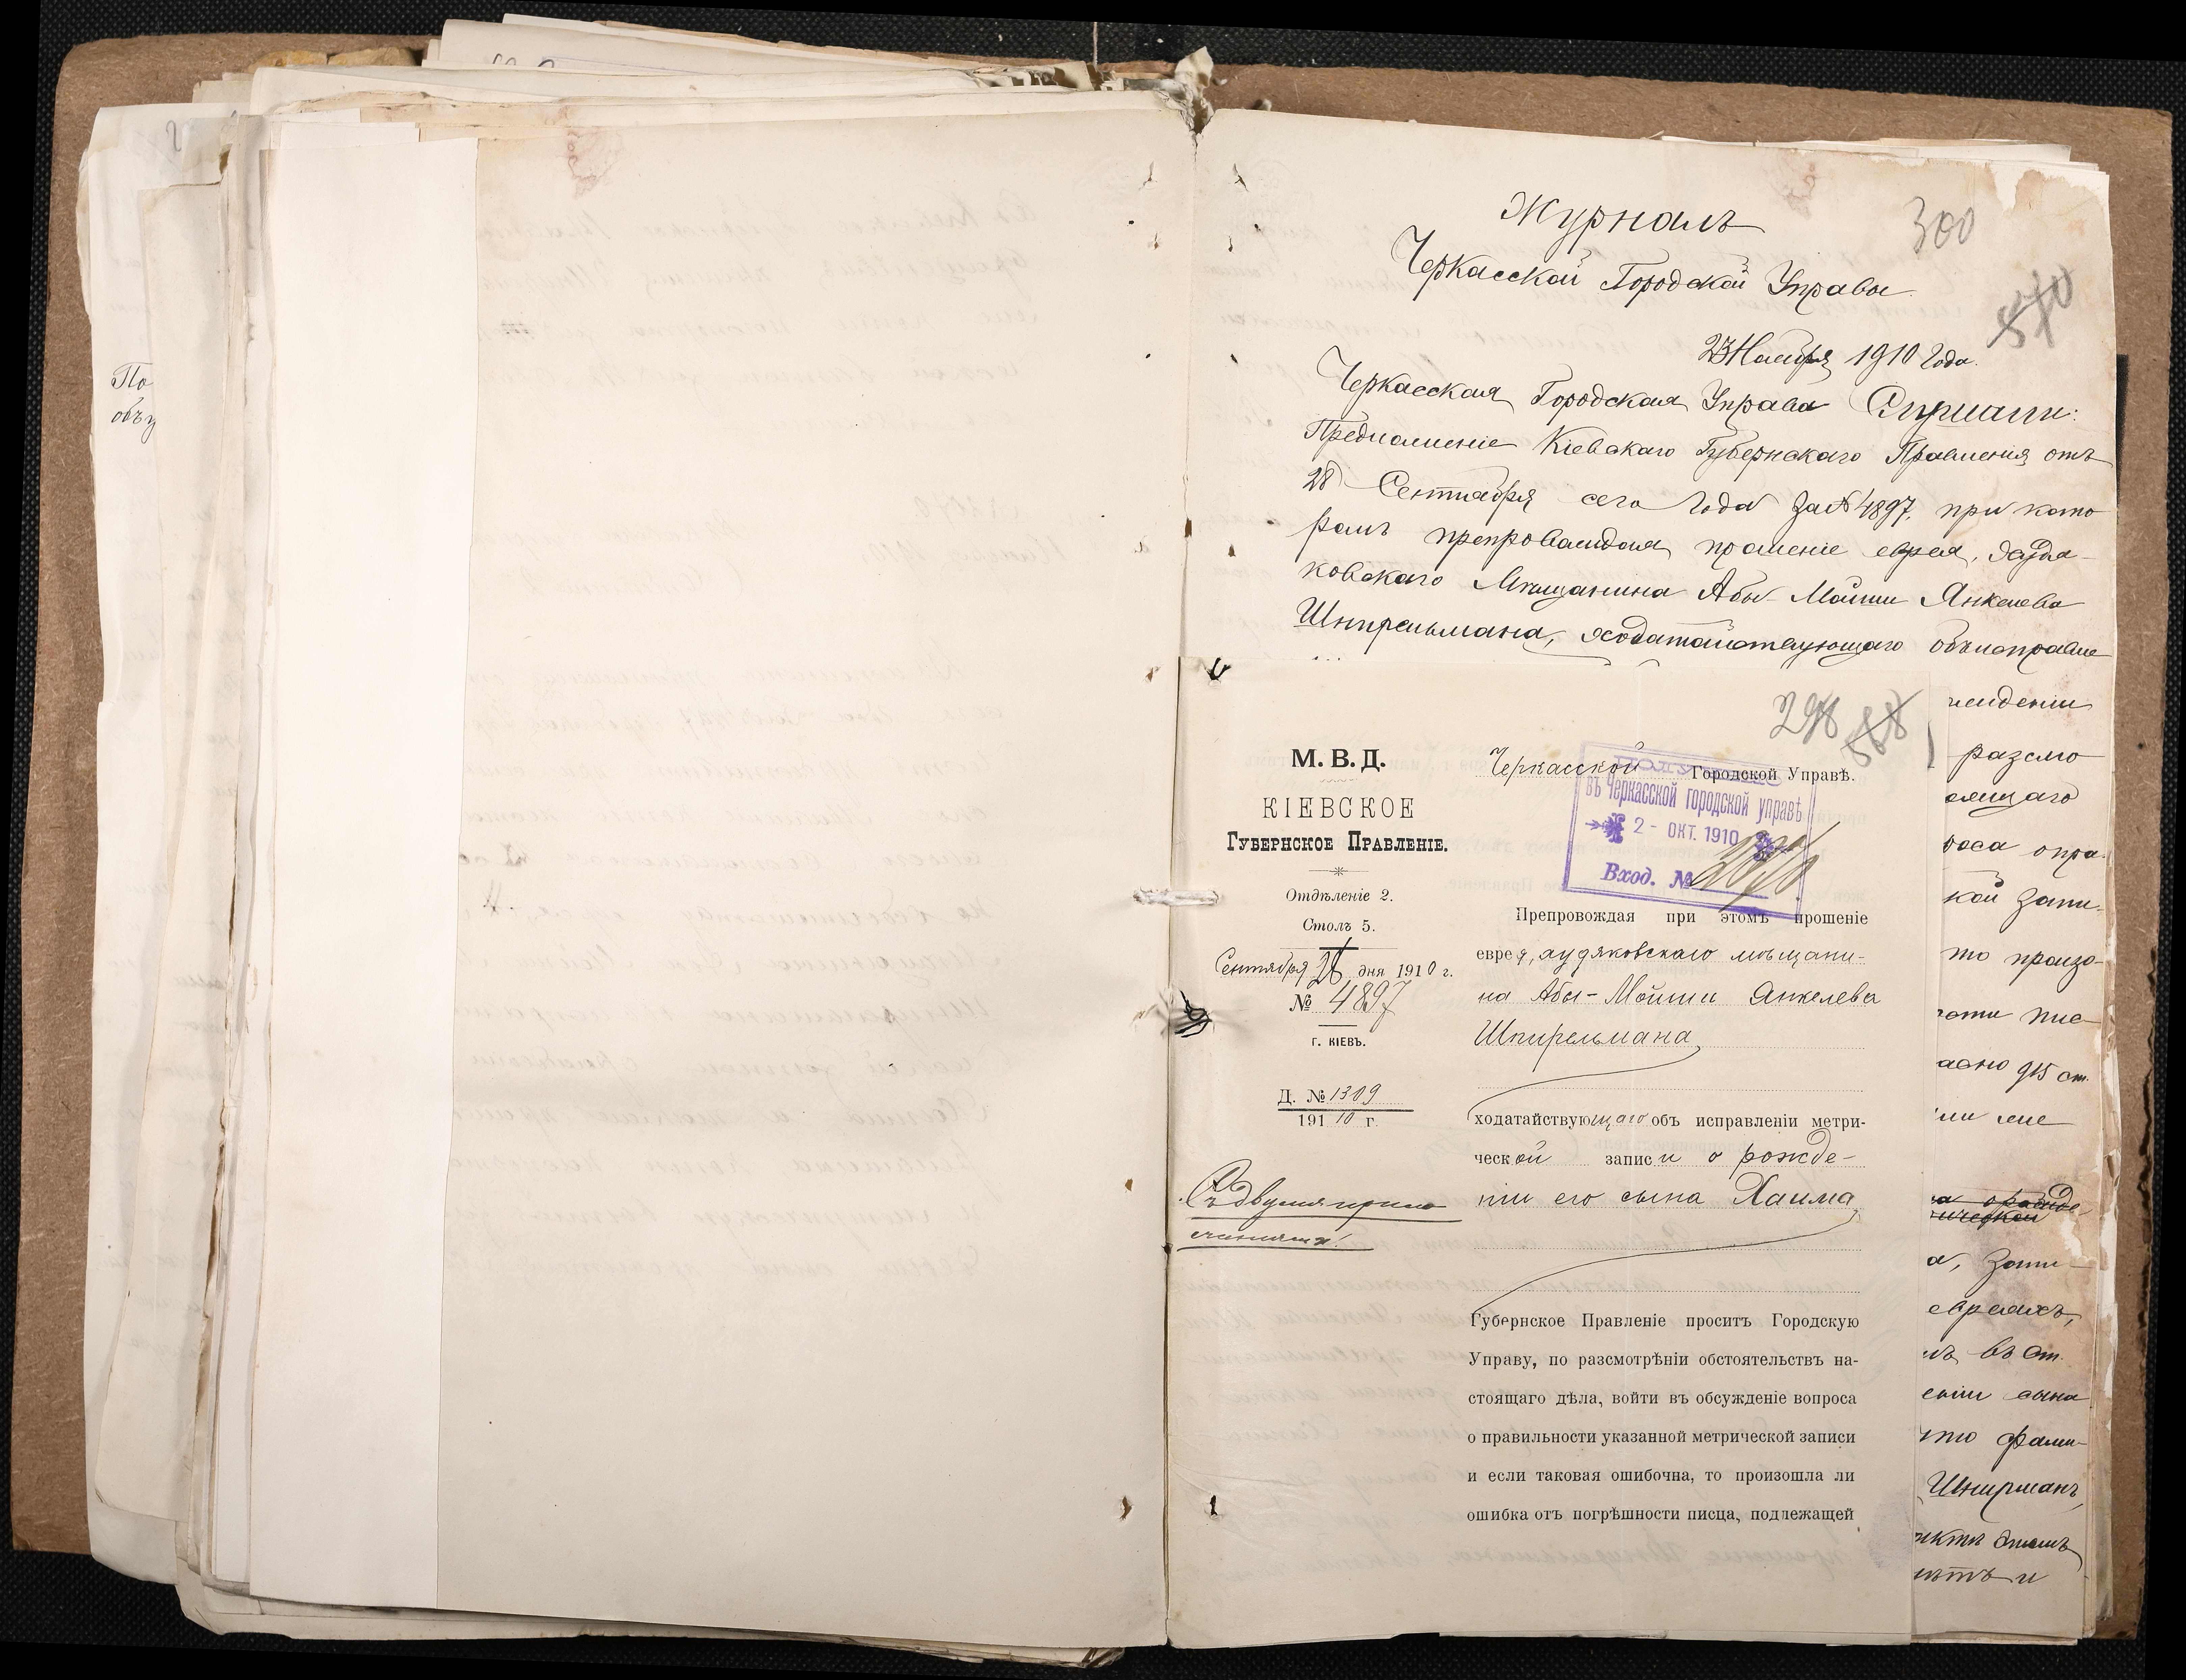 По
объу
Журналъ
300
Черкасской Городской Управы
570
23 Ноября 1910 года.
Черкасская Городская Управа Слушали:
Предложеніе Кіевскаго Губернскаго Правленія отъ
28 Сентября сего года за № 4897, при кото
ромъ препровождая прошеніе еврея, худя-
ковскаго мѣщанина Абы-Мойши Янкелева
Шпирельмана, ходатайствующаго объ исправле
298 588
М. В. Д.
КІЕВСКОЕ
ГУБЕРНСКОЕ ПРАВЛЕНІЕ.
Отдѣленіе 2.
Столъ 5.
Сентября 28 дня 1910 г.
№ 4897
г. КІЕВЪ.
Д. № 1309
1910 г.
Съ двумя прило
женіями!
Черкасской Городской Управѣ.
въ Черкасской городской управѣ
2 - ОКТ. 1910
Вход. №
Препровождая при этомъ прошеніе
еврея, худяковскаго мѣщани-
на Абы-Мойши Янкелева
Шпирельмана,
ходатайствующаго объ исправленіи метри-
ческой записи о рожде-
ніи его сына Хаима,
Губернское Правленіе проситъ Городскую
Управу, по разсмотрѣніи обстоятельствъ на-
стоящаго дѣла, войти въ обсужденіе вопроса
о правильности указанной метрической записи
и если таковая ошибочна, то произошла ли
ошибка отъ погрѣшности писца, подлежащей
жденіи
разсмо
оящаго
роса о пра
кой запи-
то произо-
ости пис
асно 915 ст.
или же
а, запи-
евреяхъ,
въ ст.
еніи сына
что фами-
Шпирманъ,